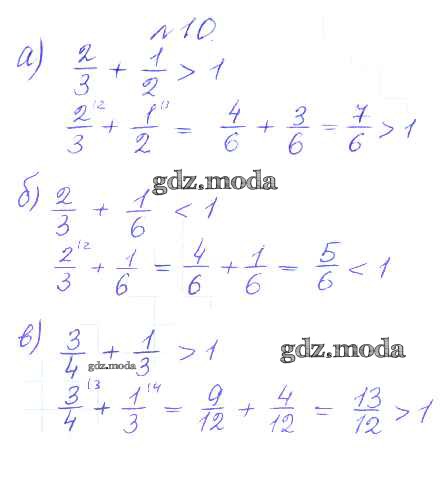 №10.
а) 2/3 + 1/2 > 1
2/3 ⁽² + 1/2 ⁽³ = 4/6 + 3/6 = 7/6 > 1
gdz.moda
б) 2/3 + 1/6 < 1
2/3 ⁽² + 1/6 = 4/6 + 1/6 = 5/6 < 1
в) 3/4 + 1/3 > 1
gdz.moda
gdz.moda
3/4 ⁽³ + 1/3 ⁽⁴ = 9/12 + 4/12 = 13/12 > 1